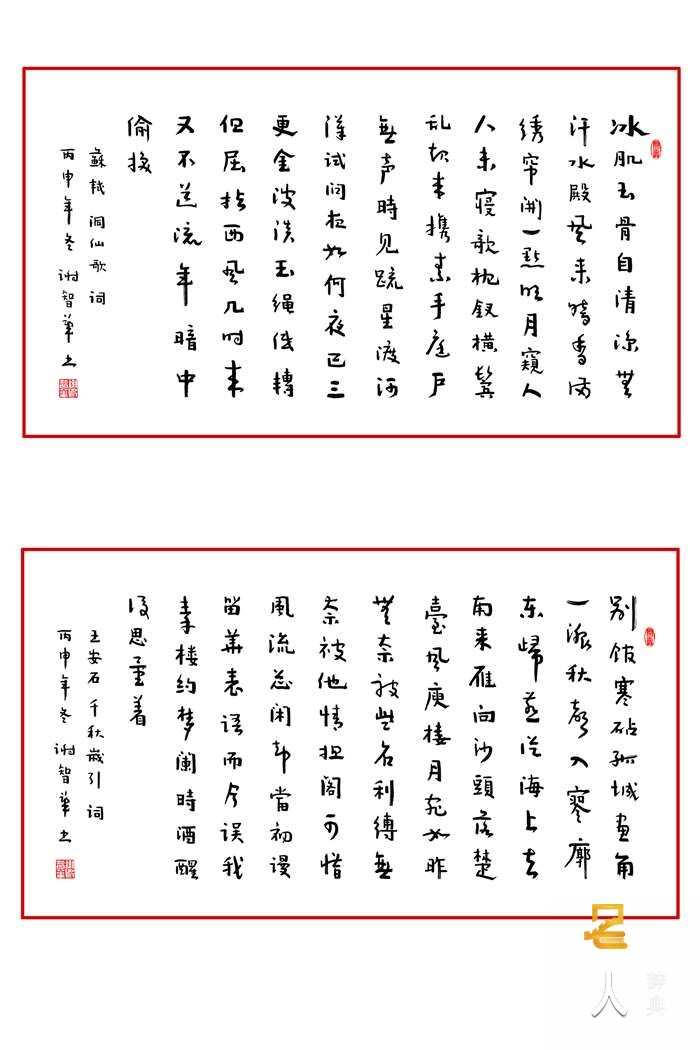 冰肌玉骨自清凉無
汗水殿风来暗香满
绣帘開一點明月窺人
人未寝欹枕钗横鬓
乱起来携素手庭户
無声時见疏星渡河
漢试问夜如何夜已三
更金波淡玉绳低轉
但屈指西风几时来
又不道流年暗中
偷换
蘇轼洞仙歌词
丙申年冬谢智華书
别馆寒砧孤城畫角
一派秋聲入寥廓
东歸燕从海上去
南来雁向沙頭落楚
臺风庾樓月宛如昨
無奈被些名利縛無
奈被他情担阁可惜
風流总闲却當初谩
留華表语而今误我
秦楼约梦闌時酒醒
後思量着
王安石千秋歲引词
丙申年冬谢智華书
名人辞典